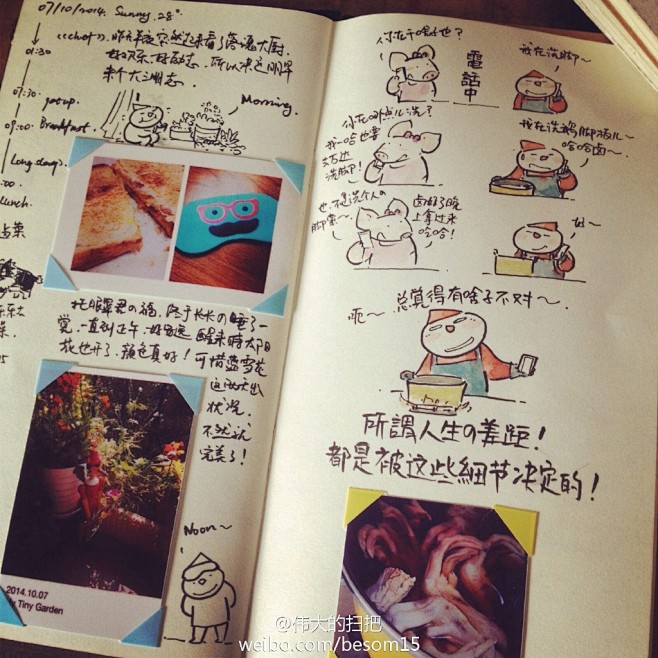 07/10/2014. Sunny. 28°
《chef》. 昨天半夜突然起来看了落魄大厨.
好欢乐. 好励志. 所以决定明早
来个大三明志.
01:30
07:30 get up.
Morning.
09:00 Breakfast.
Long sleep.
:00
Lunch.
托眼罩君の福, 终于长长の睡了一
觉. 一直到正午.
醒来時太阳
花也开了. 颜色真好! 可惜蓝雪花
状况.
不然就
完美了!
Noon~
2014.10.07
My Tiny Garden
你在干啥子也?
電話中
我在洗脚~
你在那点儿洗?
我一哈也要
去万达
洗脚!
我在洗鸡脚板儿~
哈哈卤~
也. 不是洗个人の
脚嗦~
卤好了晚
上拿过来
吃哈!
好~
呃~ 总觉得有啥子不对~.
所謂人生の差距!
都是被这些細节决定的!
@伟大的扫把
weibo.com/besom15